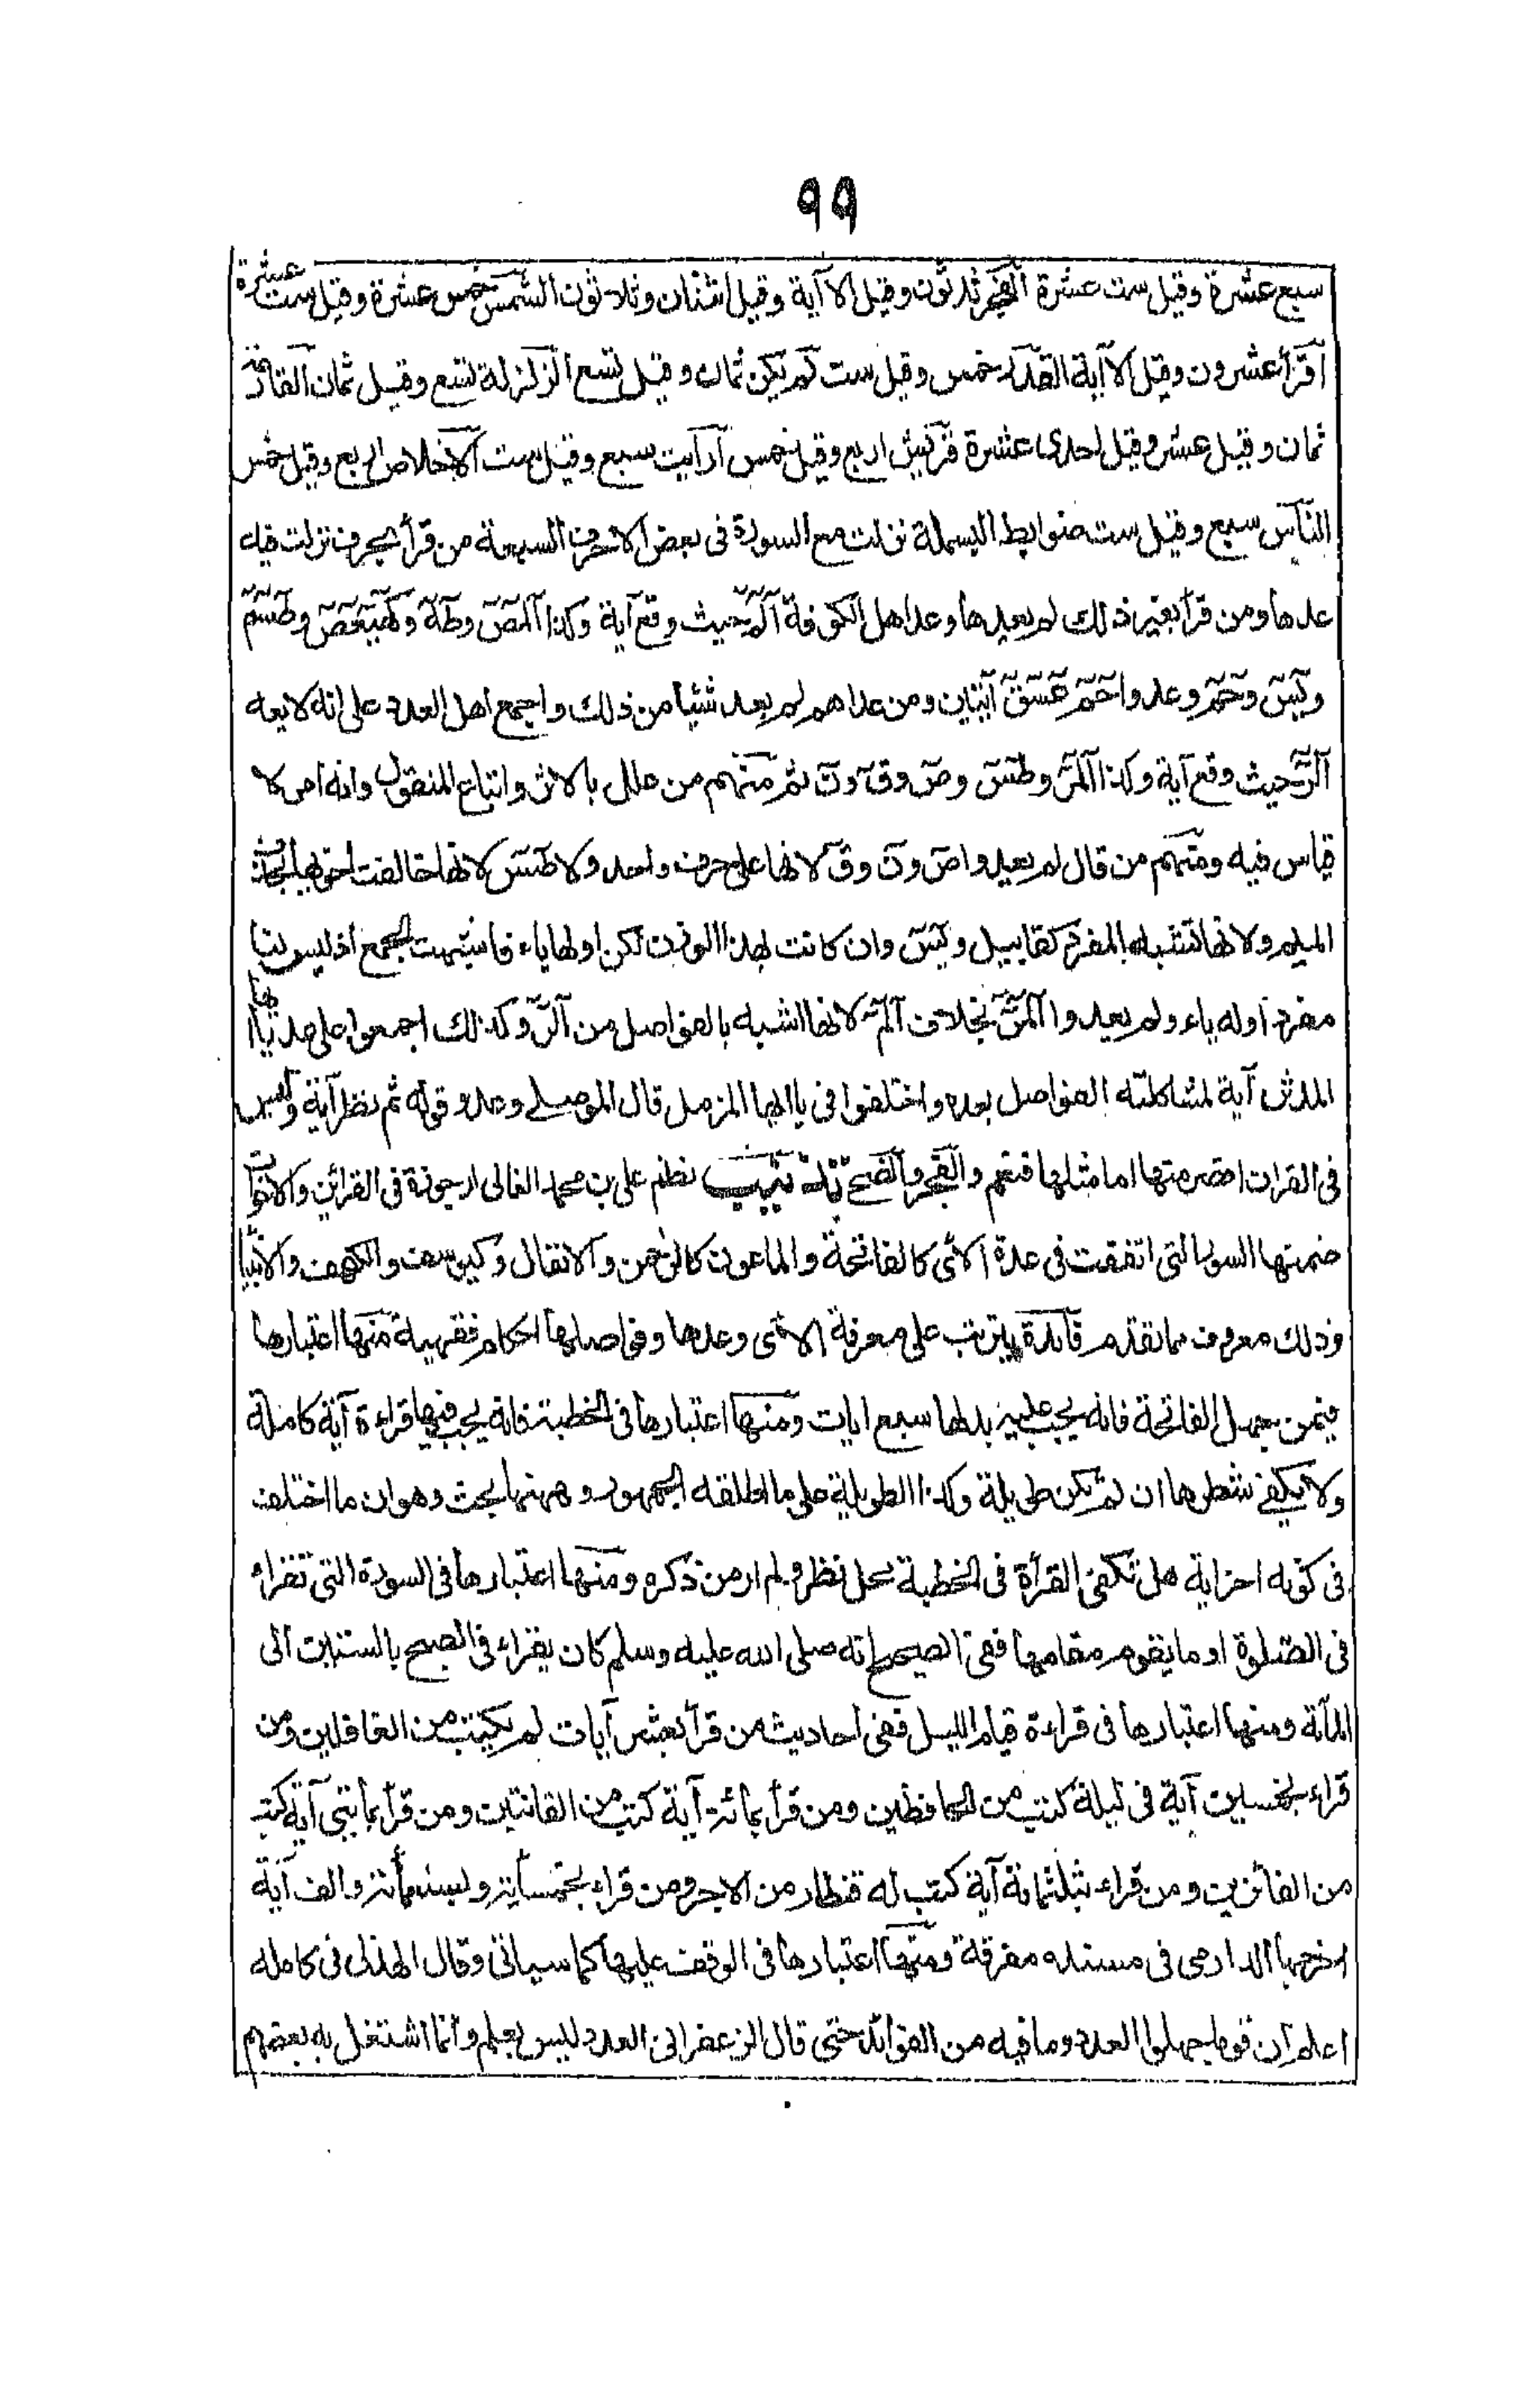 ٩٩
سبع عشرة وقيل ست عشرة الفجر ثلاثون وقيل الا آية وقيل اثنان وثلاثون الشمس خمس عشرة وقيل ست عشرة
اقرأ عشرون وقيل الا آية القدر خمس وقيل ست لم يكن ثمان وقيل تسع الزلزلة تسع وقيل ثمان القارعة
ثمان وقيل عشر وقيل احدى عشرة قريش اربع وقيل خمس أرأيت سبع وقيل ست الاخلاص اربع وقيل خمس
الناس سبع وقيل ست ضوابط البسملة نزلت مع السورة فى بعض الاحرف السبعة من قرأ بحرف نزلت فيه
عدها ومن قرأ بغير ذلك لم يعدها وعد اهل الكوفة الٓمٓ حيث وقع آية وكذا الٓمٓصٓ وطٰهٰ وكٓهٰيٰعٓصٓ وطٰسٓمٓ
ويٰسٓ وحٰمٓ وعدوا حٰمٓ عٓسٓقٓ آيتين ومن عداهم لم يعد شيئا من ذلك واجمع اهل العدد على انه لا يعد
الٓرٰ حيث وقع آية وكذا الٓمٓرٰ وطٰسٓ وصٓ وقٓ ونٓ ثم منهم من علل بالاثر واتباع المنقول وانه امر لا
قياس فيه ومنهم من قال لم يعدوا صٓ ونٓ وقٓ لانها على حرف واحد ولا طٰسٓ لانها خالفت اختيها بحذف
الميم ولانها تشبه المفرد كقابيل ويٰسٓ وان كانت بهذا الوزن لكن اولها ياء فاشبهت الجمع اذ ليس لنا
مفرد اوله ياء ولم يعدوا الٓمٓرٰ بخلاف الٓمٓ لانها اشبه بالفواصل من الٓرٰ وكذلك اجمعوا على عد يا ايها
المدثر آية لمشاكلته الفواصل بعده واختلفوا فى يا ايها المزمل قال الموصلے وعدو قوله ثم نظر آية وليس
فى القران اقصر منها اما مثلها فعم والفجر والضحى تذنيب نظم على بن محمد الغالى ارجوزة فى القرائن والاخوات
ضمنها السور التى اتفقت فى عدة الآى كالفاتحة والماعون كالرحمن والانفال وكيوسف والكهف والانبياء
وذلك معروف مما تقدم فائدة يترتب على معرفة الآى وعدها وفواصلها احكام فقهية منها اعتبارها
فيمن جهل الفاتحة فانه يجب عليه بدلها سبع ايات ومنها اعتبارها فى الخطبة فانه يجب فيها قراءة آية كاملة
ولا يكفى شطرها ان لم تكن طويلة وكذا الطويلة على ما اطلقه الجمهور وههنا بحث وهو ان ما اختلف
فى كونه اخر اية هل تكفى القرأة فى الخطبة محل نظر ولم ار من ذكره ومنها اعتبارها فى السورة التى تقراء
فى الصّلوة او ما يقوم مقامها ففى الصحيح انه صلى الله عليه وسلم كان يقراء فى الصبح بالستين الى
المآئة ومنها اعتبارها فى قراءة قيام الليل ففى احاديث من قرأ بعشر آيات لم يكتب من الغافلين ومن
قراء بخمسين آية فى ليلة كتب من الحافظين ومن قرأ بمائة آية كتب من القانتين ومن قرأ بمائتى آية كتب
من الفائزين ومن قراء بثلثمائة آية كتب له قنطار من الاجر ومن قراء بخمسمائة وبسبعمائة والف آية
اخرجها الدارمى فى مسنده مفرقة ومنها اعتبارها فى الوقف عليها كما سياتى وقال الهذلى فى كامله
اعلم ان قوما جهلوا العدد وما فيه من الفوائد حتى قال الزعفرانى العدد ليس بعلم وانما اشتغل به بعضهم